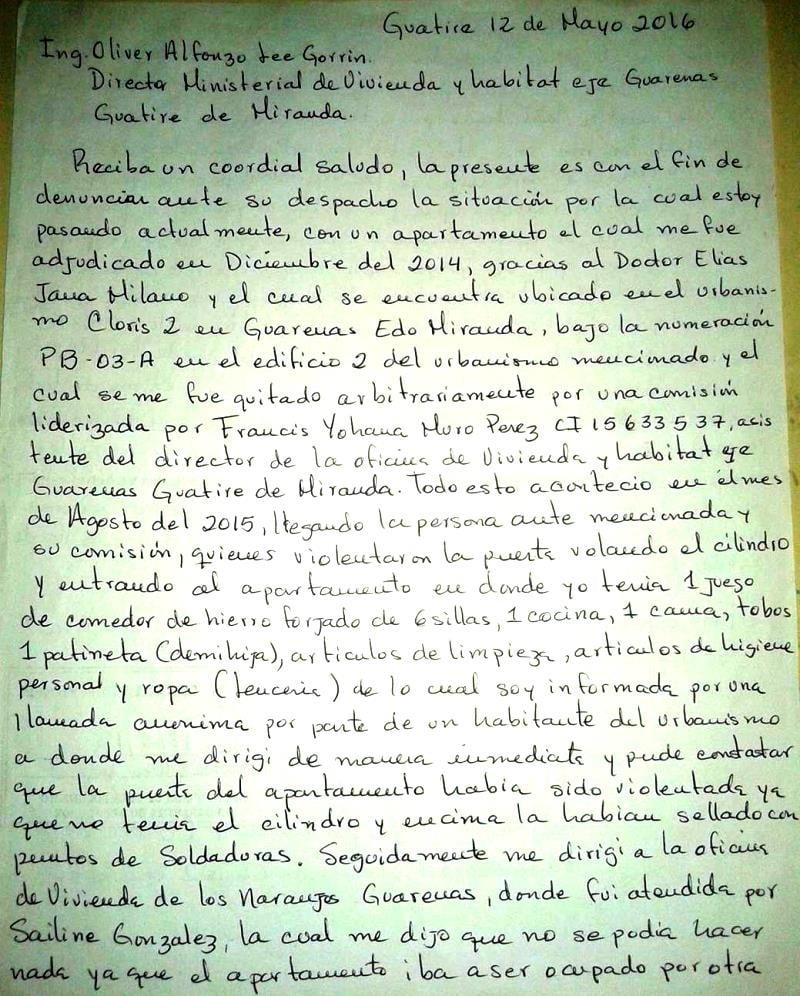 Guatire 12 de Mayo 2016
Ing. Oliver Alfonzo Lee Gorrin.
Director Ministerial de Vivienda y habitat eje Guarenas
Guatire de Miranda.
Reciba un coordial saludo, la presente es con el fin de
denunciar ante su despacho la situación por la cual estoy
pasando actualmente, con un apartamento el cual me fue
adjudicado en Diciembre del 2014, gracias al Doctor Elias
Jaua Milano y el cual se encuentra ubicado en el urbanis-
mo Cloris 2 en Guarenas Edo Miranda, bajo la numeración
PB-03-A en el edificio 2 del urbanismo mencionado y el
cual se me fue quitado arbitrariamente por una comisión
liderizada por Francis Yohana Muro Perez CI 15633537, asis
tente del director de la oficina de Vivienda y habitat eje
Guarenas Guatire de Miranda. Todo esto acontecio en el mes
de Agosto del 2015, llegando la persona ante mencionada y
su comisión, quienes violentaron la puerta volando el cilindro
y entrando al apartamento en donde yo tenia 1 juego
de comedor de hierro forjado de 6 sillas, 1 cocina, 1 cama, tobos
1 patineta (de mi hija), articulos de limpieza, articulos de higiene
personal y ropa (lenceria) de lo cual soy informada por una
llamada anonima por parte de un habitante del urbanismo
a donde me dirigi de manera inmediata y pude constatar
que la puerta del apartamento habia sido violentada ya
que no tenia el cilindro y encima la habian sellado con
puntos de Soldaduras. Seguidamente me dirigi a la oficina
de Vivienda de los Naranjos Guarenas, donde fui atendida por
Sailine Gonzalez, la cual me dijo que no se podia hacer
nada ya que el apartamento iba a ser ocupado por otra